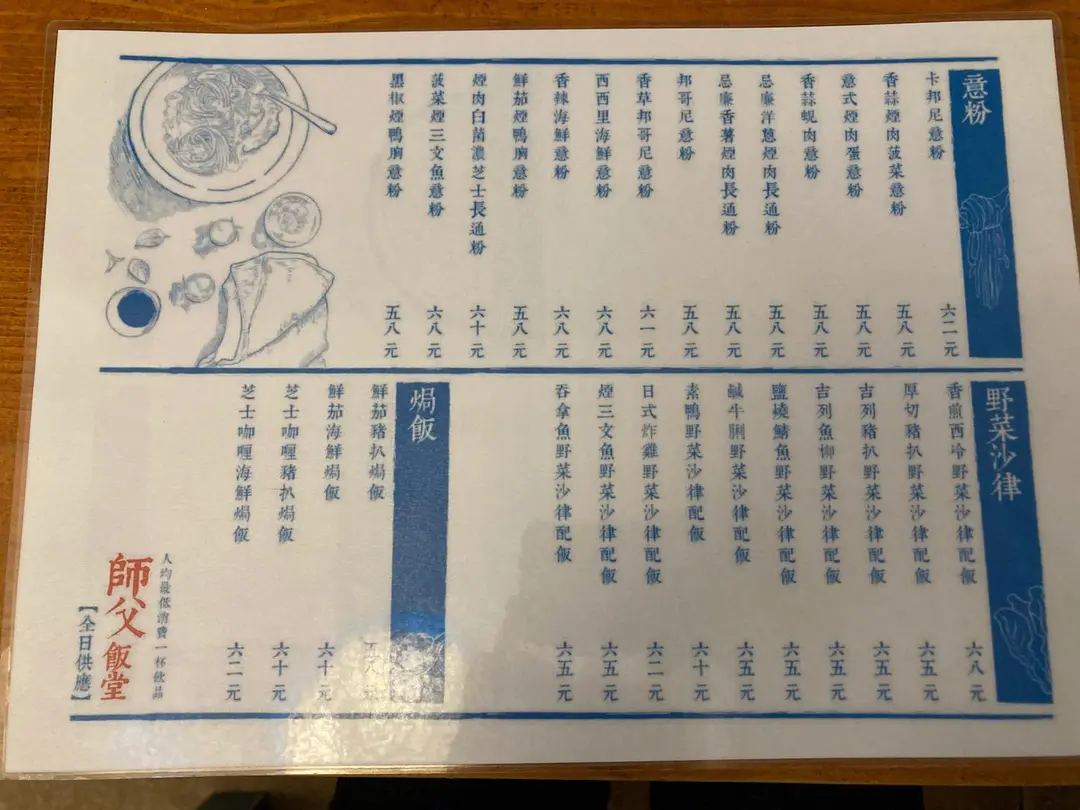 意粉
卡邦尼意粉 六二元
香蒜煙肉菠菜意粉 五八元
意式煙肉蛋意粉 五八元
香蒜蜆肉意粉 五八元
忌廉洋蔥煙肉長通粉 五八元
忌廉香薯煙肉長通粉 五八元
邦哥尼意粉 五八元
香草邦哥尼意粉 六一元
西西里海鮮意粉 六八元
香辣海鮮意粉 六八元
鮮茄煙鴨胸意粉 五八元
煙肉白菌濃芝士長通粉 六十元
菠菜煙三文魚意粉 六八元
黑椒煙鴨胸意粉 五八元
野菜沙律
香煎西冷野菜沙律配飯 六八元
厚切豬扒野菜沙律配飯 六五元
吉列豬扒野菜沙律配飯 六五元
吉列魚柳野菜沙律配飯 六五元
鹽燒鯖魚野菜沙律配飯 六五元
鹹牛脷野菜沙律配飯 六五元
素鴨野菜沙律配飯 六十元
日式炸雞野菜沙律配飯 六二元
煙三文魚野菜沙律配飯 六五元
吞拿魚野菜沙律配飯 六五元
焗飯
鮮茄豬扒焗飯 元
鮮茄海鮮焗飯 六十元
芝士咖喱豬扒焗飯 六十元
芝士咖喱海鮮焗飯 六二元
人均最低消費一杯飲品
師父飯堂
【全日供應】